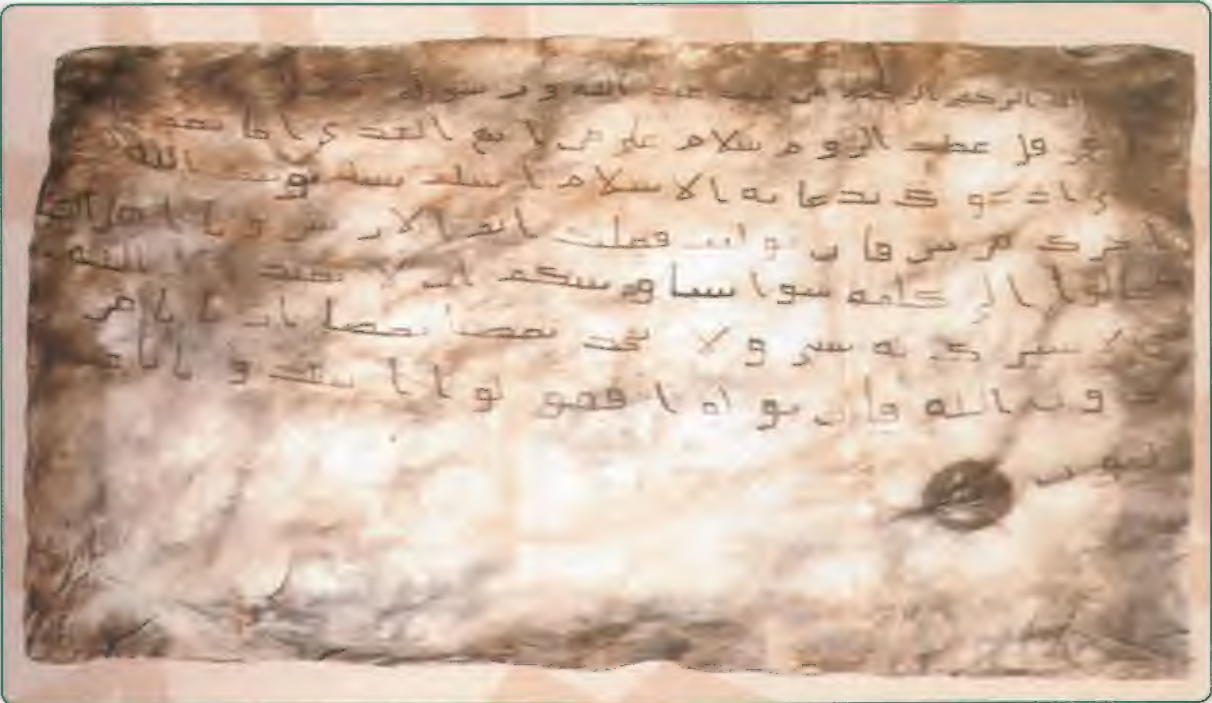 الله الرحمن الرحيم من محمد عبد الله ورسوله
هرقل عظيم الروم سلام على من اتبع الهدى اما بعد
ادعوك بدعاية الاسلام اسلم تسلم يوتك الله
اجرك مرتين فان توليت فعليك اثم الاريسين ويا اهل الكتا
تعالوا الى كلمة سوا بيننا وبينكم ان لا نعبد الا الله
ولا نشرك به شيا ولا يتخذ بعضنا بعضا اربابا من
دون الله فان تولوا فقولوا اشهدوا بانا مس
لمون